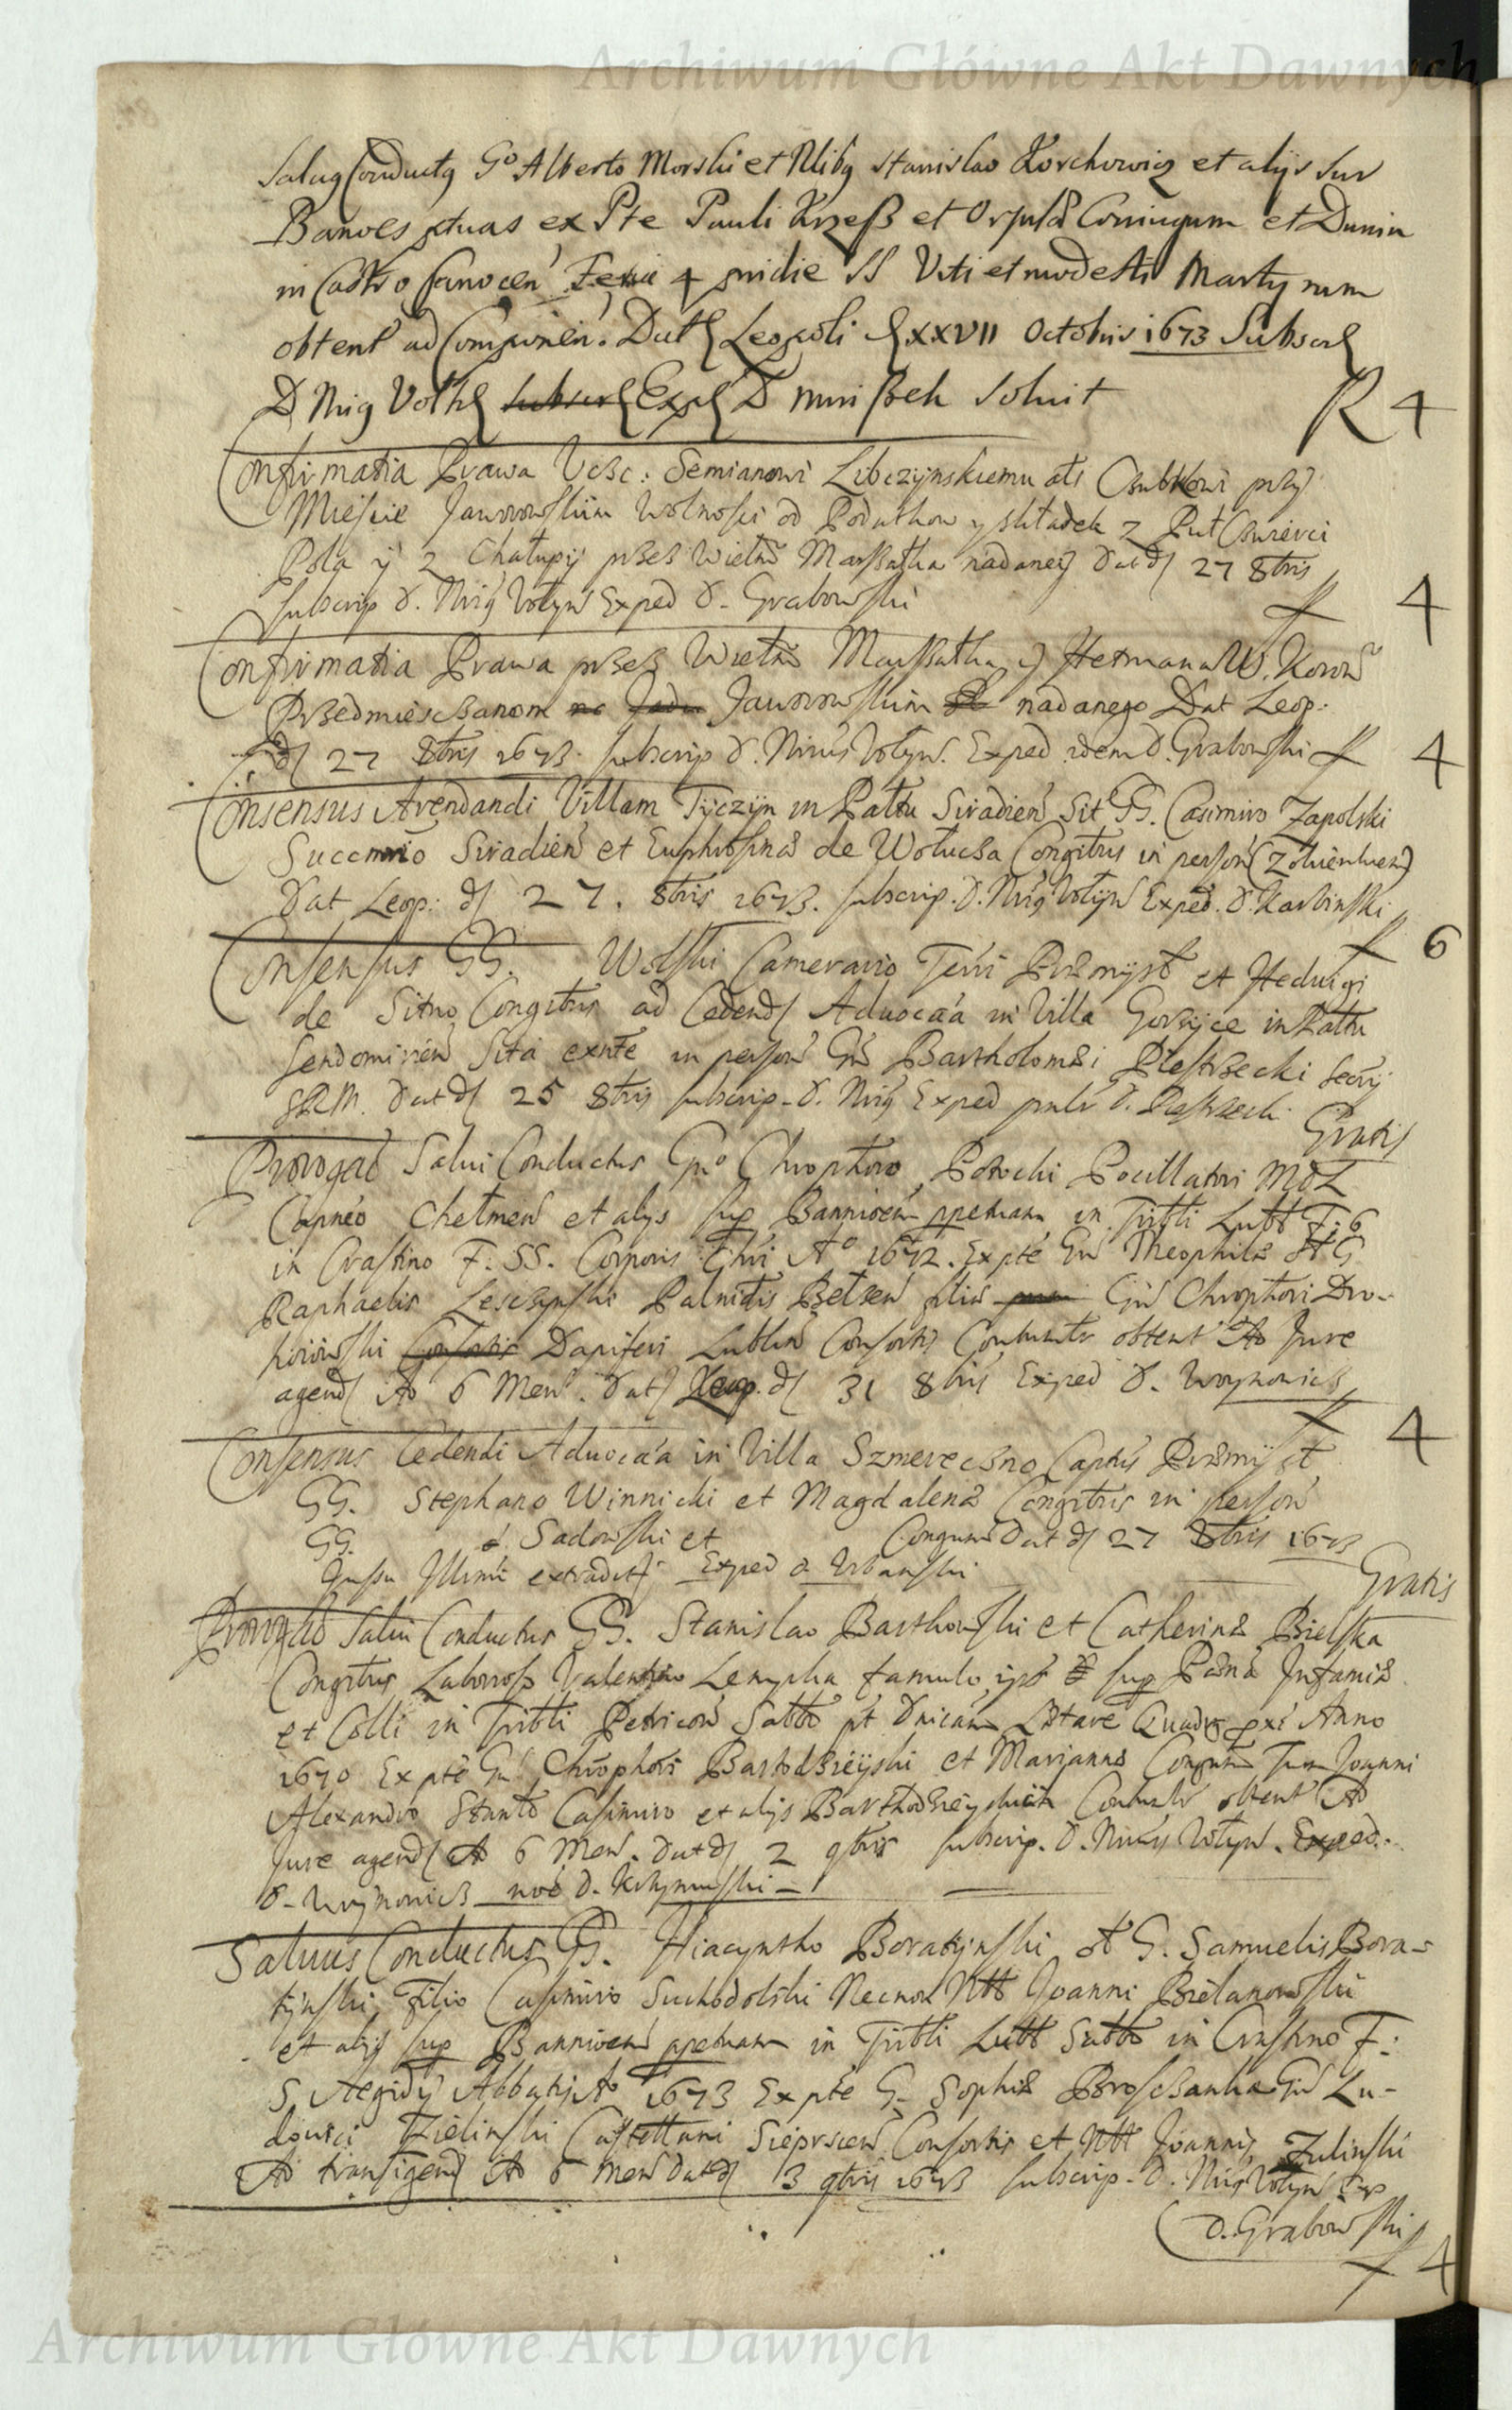 Archiwum Główne Akt Dawnych
Salug Conductg Go Alberto Morski et Nlibg Stanislao Korchowicz et alijs sur
Banoes ptuas ex Pte Pauli Krzeß et Orsula Coniugum et Dunin
in Castro Sanocen Feria 4 pridie SS Viti et modesti Martyrum
obtent ad Componen. Dat Leopoli XXVII Octobris 1673 Subscr
D Nrig Volh Subscr Exp D Mnißek Soluit
R 4
Confirmatia Prawa Vcsc: Semianowi Libczynskiemu als Csubkowi przy
Miescie Jaworowskim Wolnosci od Podatkow y składek z Puł Cswierci
Pola y z Chałupy przes Wielm Marszałka nadaney Dat d 27 8bris
subscrip D. Nrig Volyn Exped D. Grabowski
4
Confirmatia Prawa przes Wielm Marszałka y Hetmana W. Koron
Przedmiescsanom na Jaworowskim nadanego Dat Leop.
d 27 8bris 1673. subscrip D. Nrius Volyn. Exped idem D. Grabowski
4
Consensus Arendandi Villam Tyczyn in Pałtu Siradien Sit GG. Casimiro Zapolski
Succamrio Siradien et Euphrosina de Wołucza Congitus in person
Dat Leop: d 27. 8bris 1673. subscrip. D. Nrig Volyn Exped. D. Karbinski
6
Consensus GG. Wolski Camerario Terri Przmysł et Hedwigi
de Sitno Congitus ad Cedend Aduocaa in Villa Gorzyce in Pałtu
Sendomirien Sita exnte in person Gn Bartholomæi Piestrzecki Secrij
SRM. Dat d 25 8bris subscrip. D. Nrig Exped D. Piestrzecki
Gratis
Prorogao Salui Conductus Gno Chrophoro Potocki Pocillatori MDL
Capneo Chełmen et alys sup Bannioem ppetuam in Tribli Lubl F. 6
in Crastino F. SS. Corporis Chri Ao 1672. Ex pte Gn Theophilæ G
Raphaelis Lesczynski Palnidis Bełsen filiæ Gn Chrophori Dro-
hoiowski Consortis Dapiferi Lublin Consortis Contumtr obtent Ad Jure
agend Ad 6 Men. Dat Leop. d 31 8bris Exped D. Woynowicz
4
Consensus Cedendi Aduocaa in Villa Szmereczno Captus Przmysł
GG. Stephano Winnicki et Magdalenæ Congitus in person
GG. Sadowski et Congum Dat d 27 8bris 1673
Jussu Illmi extradit Exped D Urbanski
Gratis
Prorogao Salui Conductus GG. Stanislao Barthowski et Catherinæ Bielska
Congitus Laborios Valentino Lempka famulo ips sup Pæna Infamiæ
et Colli in Tribli Petricow Sabbo pt Dnicam Lætare Quadr pxi Anno
1670 Ex pte Gn Chrophori Bartodzieyski et Marjannæ Congum Tum Joanni
Alexandro Stanlo Casimiro et alys Barthodzieyskich Contumtr obtent Ad
Jure agend Ad 6 Men. Dat d 2 9bris subscrip. D. Nrius Volyn. Exped.
D. Woynowicz
Saluus Conductus GG. Hiacyntho Boratynski G. Samuelis Bora-
tynski Filio Casimiro Suchodolski Necnon Nbb Joanni Bielanowski
et alys sup Bannioem ppetuam in Tribli Lubl Sabbo in Crastino F:
S Aegidij Abbatis Ao 1673 Ex pte G. Sophiæ Broscanka Gn Lu-
douici Zielinski Castellani Sieprscen Consortis et Nbl Joannis Zulinski
Ad transigend Ad 6 Men Dat d 3 9bris 1673 subscrip. D. Nrig Volyn Exp
D. Grabowski
4
Archiwum Główne Akt Dawnych